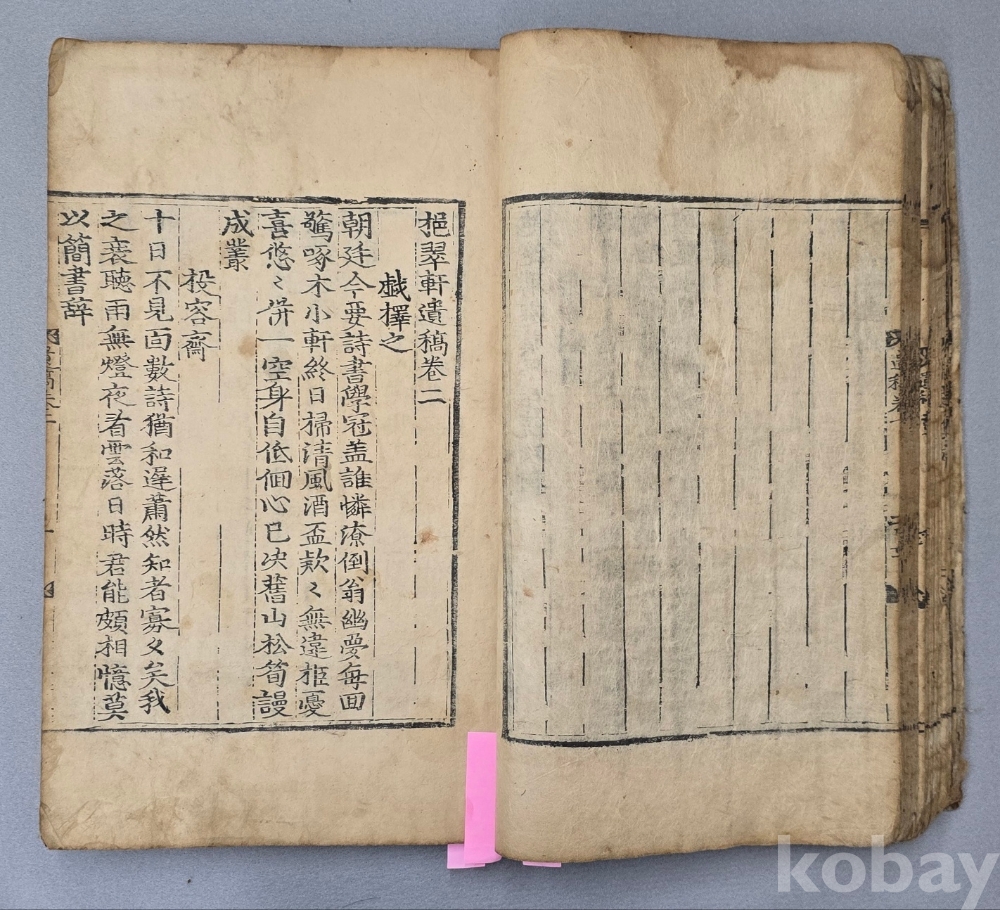 挹翠軒遺稿卷二
戱擇之
朝廷今要詩書學冠盖誰憐潦倒翁幽夢每回
驚啄木小軒終日掃清風酒盃欵〻無違拒憂
喜悠〻併一空身自低佪心已决舊山松筍謾
成叢
投容齋
十日不見面數詩猶和遲蕭然知者寡久矣我
之衰聽雨無燈夜看雲落日時君能頗相憶莫
以簡書辞
kobay